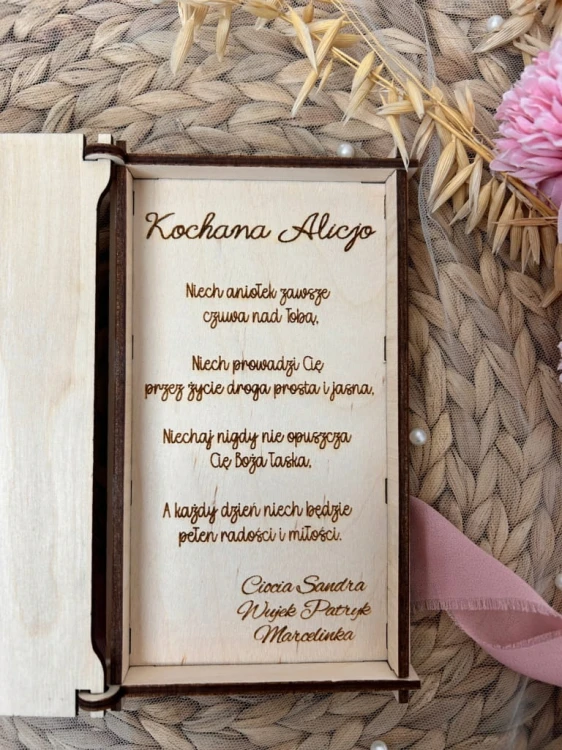 Kochana Alicjo
Niech aniołek zawsze
czuwa nad Tobą,
Niech prowadzi Cię
przez życie droga prosta i jasna,
Niechaj nigdy nie opuszcza
Cię Boża Łaska,
A każdy dzień niech będzie
pełen radości i miłości.
Ciocia Sandra
Wujek Patryk
Marcelinka